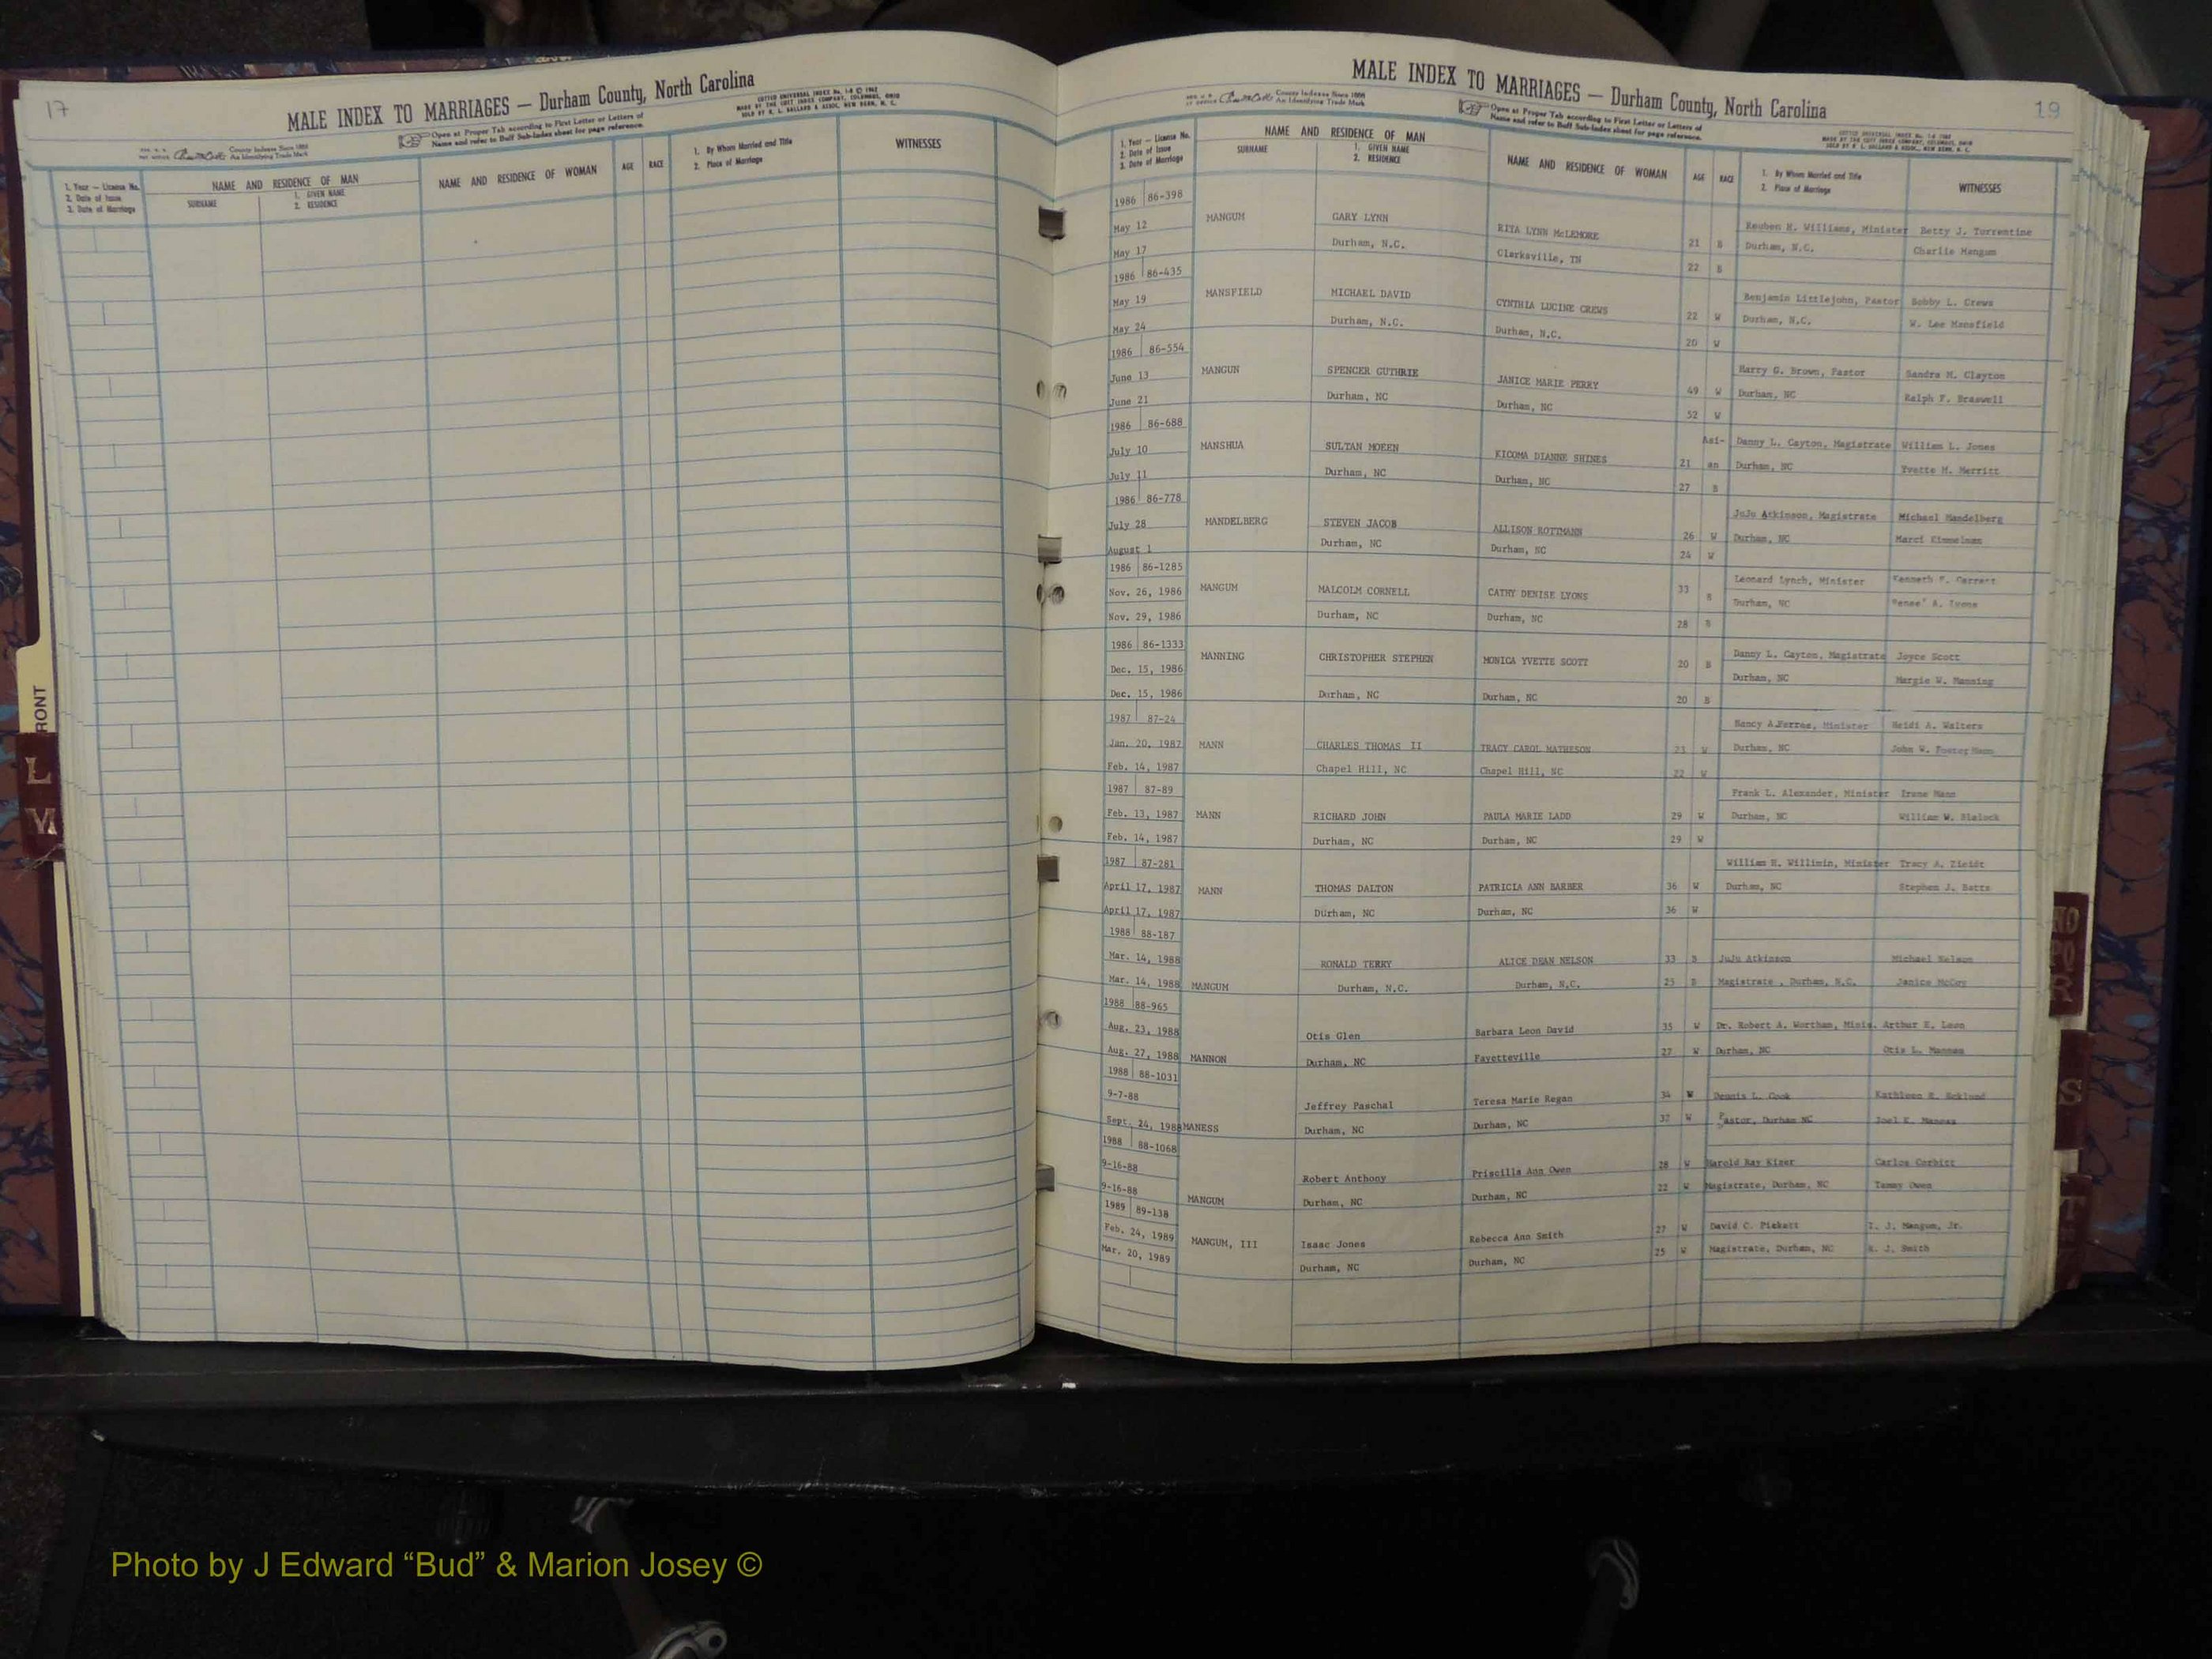 17
MALE INDEX TO MARRIAGES — Durham County, North Carolina
COTT'S UNIVERSAL INDEX No. 1-6 © 1962
MADE BY THE COTT INDEX COMPANY, COLUMBUS, OHIO
SOLD BY O. L. BALLARD & ASSOC. NEW BERN, N. C.
County Indexes Since 1888
An Identifying Trade Mark
Open at Proper Tab according to First Letter or Letters of
Name and refer to Buff Sub-Index sheet for page reference.
1. Year — License No.
2. Date of Issue
3. Date of Marriage
NAME AND RESIDENCE OF MAN
SURNAME
1. GIVEN NAME
2. RESIDENCE
NAME AND RESIDENCE OF WOMAN
AGE
RACE
1. By Whom Married and Title
2. Place of Marriage
WITNESSES
RONT
L
MALE INDEX TO MARRIAGES — Durham County, North Carolina
19
County Indexes Since 1888
An Identifying Trade Mark
Open at Proper Tab according to First Letter or Letters of
Name and refer to Buff Sub-Index sheet for page reference.
1. Year — License No.
2. Date of Issue
3. Date of Marriage
NAME AND RESIDENCE OF MAN
SURNAME
1. GIVEN NAME
2. RESIDENCE
NAME AND RESIDENCE OF WOMAN
AGE
RACE
1. By Whom Married and Title
2. Place of Marriage
WITNESSES
1986 86-398
May 12 MANGUM GARY LYNN RITA LYNN McLEMORE 21 B Reuben H. Williams, Minister Betty J. Torrentine
May 17 Durham, N.C. Clarksville, TN 22 B Durham, N.C. Charlie Mangum
1986 86-435
May 19 MANSFIELD MICHAEL DAVID CYNTHIA LUCINE CREWS 22 W Benjamin Littlejohn, Pastor Bobby L. Crews
May 24 Durham, N.C. Durham, N.C. 20 W Durham, N.C. W. Lee Mansfield
1986 86-554
June 13 MANGUN SPENCER GUTHRIE JANICE MARIE PERRY 49 W Harry G. Brown, Pastor Sandra M. Clayton
June 21 Durham, NC Durham, NC 52 W Durham, NC Ralph F. Braswell
1986 86-688
July 10 MANSHUA SULTAN MOEEN KICOMA DIANNE SHINES 21 Asi-an Danny L. Cayton, Magistrate William L. Jones
July 11 Durham, NC Durham, NC 27 B Durham, NC Yvette M. Merritt
1986 86-778
July 28 MANDELBERG STEVEN JACOB ALLISON ROTTMANN 26 W JuJu Atkinson, Magistrate Michael Mandelberg
August 1 Durham, NC Durham, NC 24 W Durham, NC Marci
1986 86-1285
Nov. 26, 1986 MANGUM MALCOLM CORNELL CATHY DENISE LYONS 33 B Leonard Lynch, Minister Kenneth F. Garrett
Nov. 29, 1986 Durham, NC Durham, NC 28 B Durham, NC Renee' A. Lyons
1986 86-1333
Dec. 15, 1986 MANNING CHRISTOPHER STEPHEN MONICA YVETTE SCOTT 20 B Danny L. Cayton, Magistrate Joyce Scott
Dec. 15, 1986 Durham, NC Durham, NC 20 B Durham, NC Margie W. Manning
1987 87-24
Jan. 20, 1987 MANN CHARLES THOMAS II TRACY CAROL MATHESON 23 W Nancy A.Ferree, Minister Heidi A. Walters
Feb. 14, 1987 Chapel Hill, NC Chapel Hill, NC 22 W Durham, NC John W. Foster Mann
1987 87-89
Feb. 13, 1987 MANN RICHARD JOHN PAULA MARIE LADD 29 W Frank L. Alexander, Minister Irene Mann
Feb. 14, 1987 Durham, NC Durham, NC 29 W Durham, NC William W. Blalock
1987 87-281
April 17, 1987 MANN THOMAS DALTON PATRICIA ANN BARBER 36 W William H. Willimin, Minister Tracy A. Zieidt
April 17, 1987 Durham, NC Durham, NC 36 W Durham, NC Stephen J. Batts
1988 88-187
Mar. 14, 1988 RONALD TERRY ALICE DEAN NELSON 33 B JuJu Atkinson Michael Nelson
Mar. 14, 1988 MANGUM Durham, N.C. Durham, N.C. 25 B Magistrate , Durham, N.C. Janice McCoy
1988 88-965
Aug. 23, 1988 Otis Glen Barbara Leon David 35 W Dr. Robert A. Wortham, Minis. Arthur E. Leon
Aug. 27, 1988 MANNON Durham, NC Fayetteville 27 W Durham, NC Otis L. Mannon
1988 88-1031
9-7-88 Jeffrey Paschal Teresa Marie Regan 34 W Dennis L. Cook Kathleen R. Ecklund
Sept. 24, 1988 MANESS Durham, NC Durham, NC 32 W Pastor, Durham NC Joel E. Maness
1988 88-1068
9-16-88 Robert Anthony Priscilla Ann Owen 28 W Harold Ray Kizer Carlos Corbitt
9-16-88 MANGUM Durham, NC Durham, NC 22 W Magistrate, Durham, NC Tammy Owen
1989 89-138
Feb. 24, 1989 MANGUM, III Isaac Jones Rebecca Ann Smith 27 W David C. Pickett I. J. Mangum, Jr.
Mar. 20, 1989 Durham, NC Durham, NC 25 W Magistrate, Durham, NC K. J. Smith
NO
PQ
R
S
T
Photo by J Edward “Bud” & Marion Josey ©